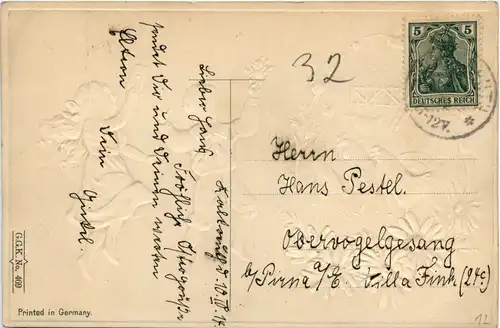 Kaltenbg. d. 10.IV.14.
Lieber Hans!
Fröhliche Ostergrüße
sendet Dir und Deinen werten
Eltern
Dein
32
5 5
DEUTSCHES REICH
-12V.
Herrn
Hans Pestel.
Obervogelgesang
b/Pirna a/E. Villa Fink (24c)
G.G.K. No. 469
Printed in Germany.
12